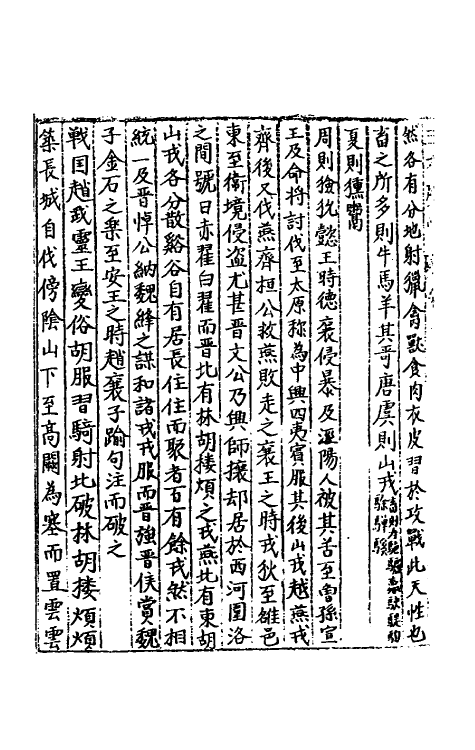 然各有分地射獵禽獸食肉衣皮習於攻戰此天性也
畜之所多則牛馬羊其哥唐虞則山戎
夏則獯鬻
周則獫狁懿王時德衰侵暴及涇陽人被其苦至曾孫宣
王及命將討伐至太原称為中興四夷賓服其後山戎越燕戎
齊後又伐燕齊桓公救燕敗走之襄王之時戎狄至雒邑
東至衛境侵盗尤甚晋文公乃興師攘却居於西河圁洛
之間號曰赤翟白翟而晋北有林胡摟煩之戎燕北有東胡
山戎各分散谿谷自有居長住住而聚者百有餘戎然不相
統一及晋悼公納魏絳之謀和諸戎戎服而晋強晋侯賞魏
子金石之樂至安王之時趙襄子踰句注而破之
戰国趙武靈王變俗胡服習騎射北破林胡摟煩煩
築長城自代傍陰山下至高闕為塞而置雲雲